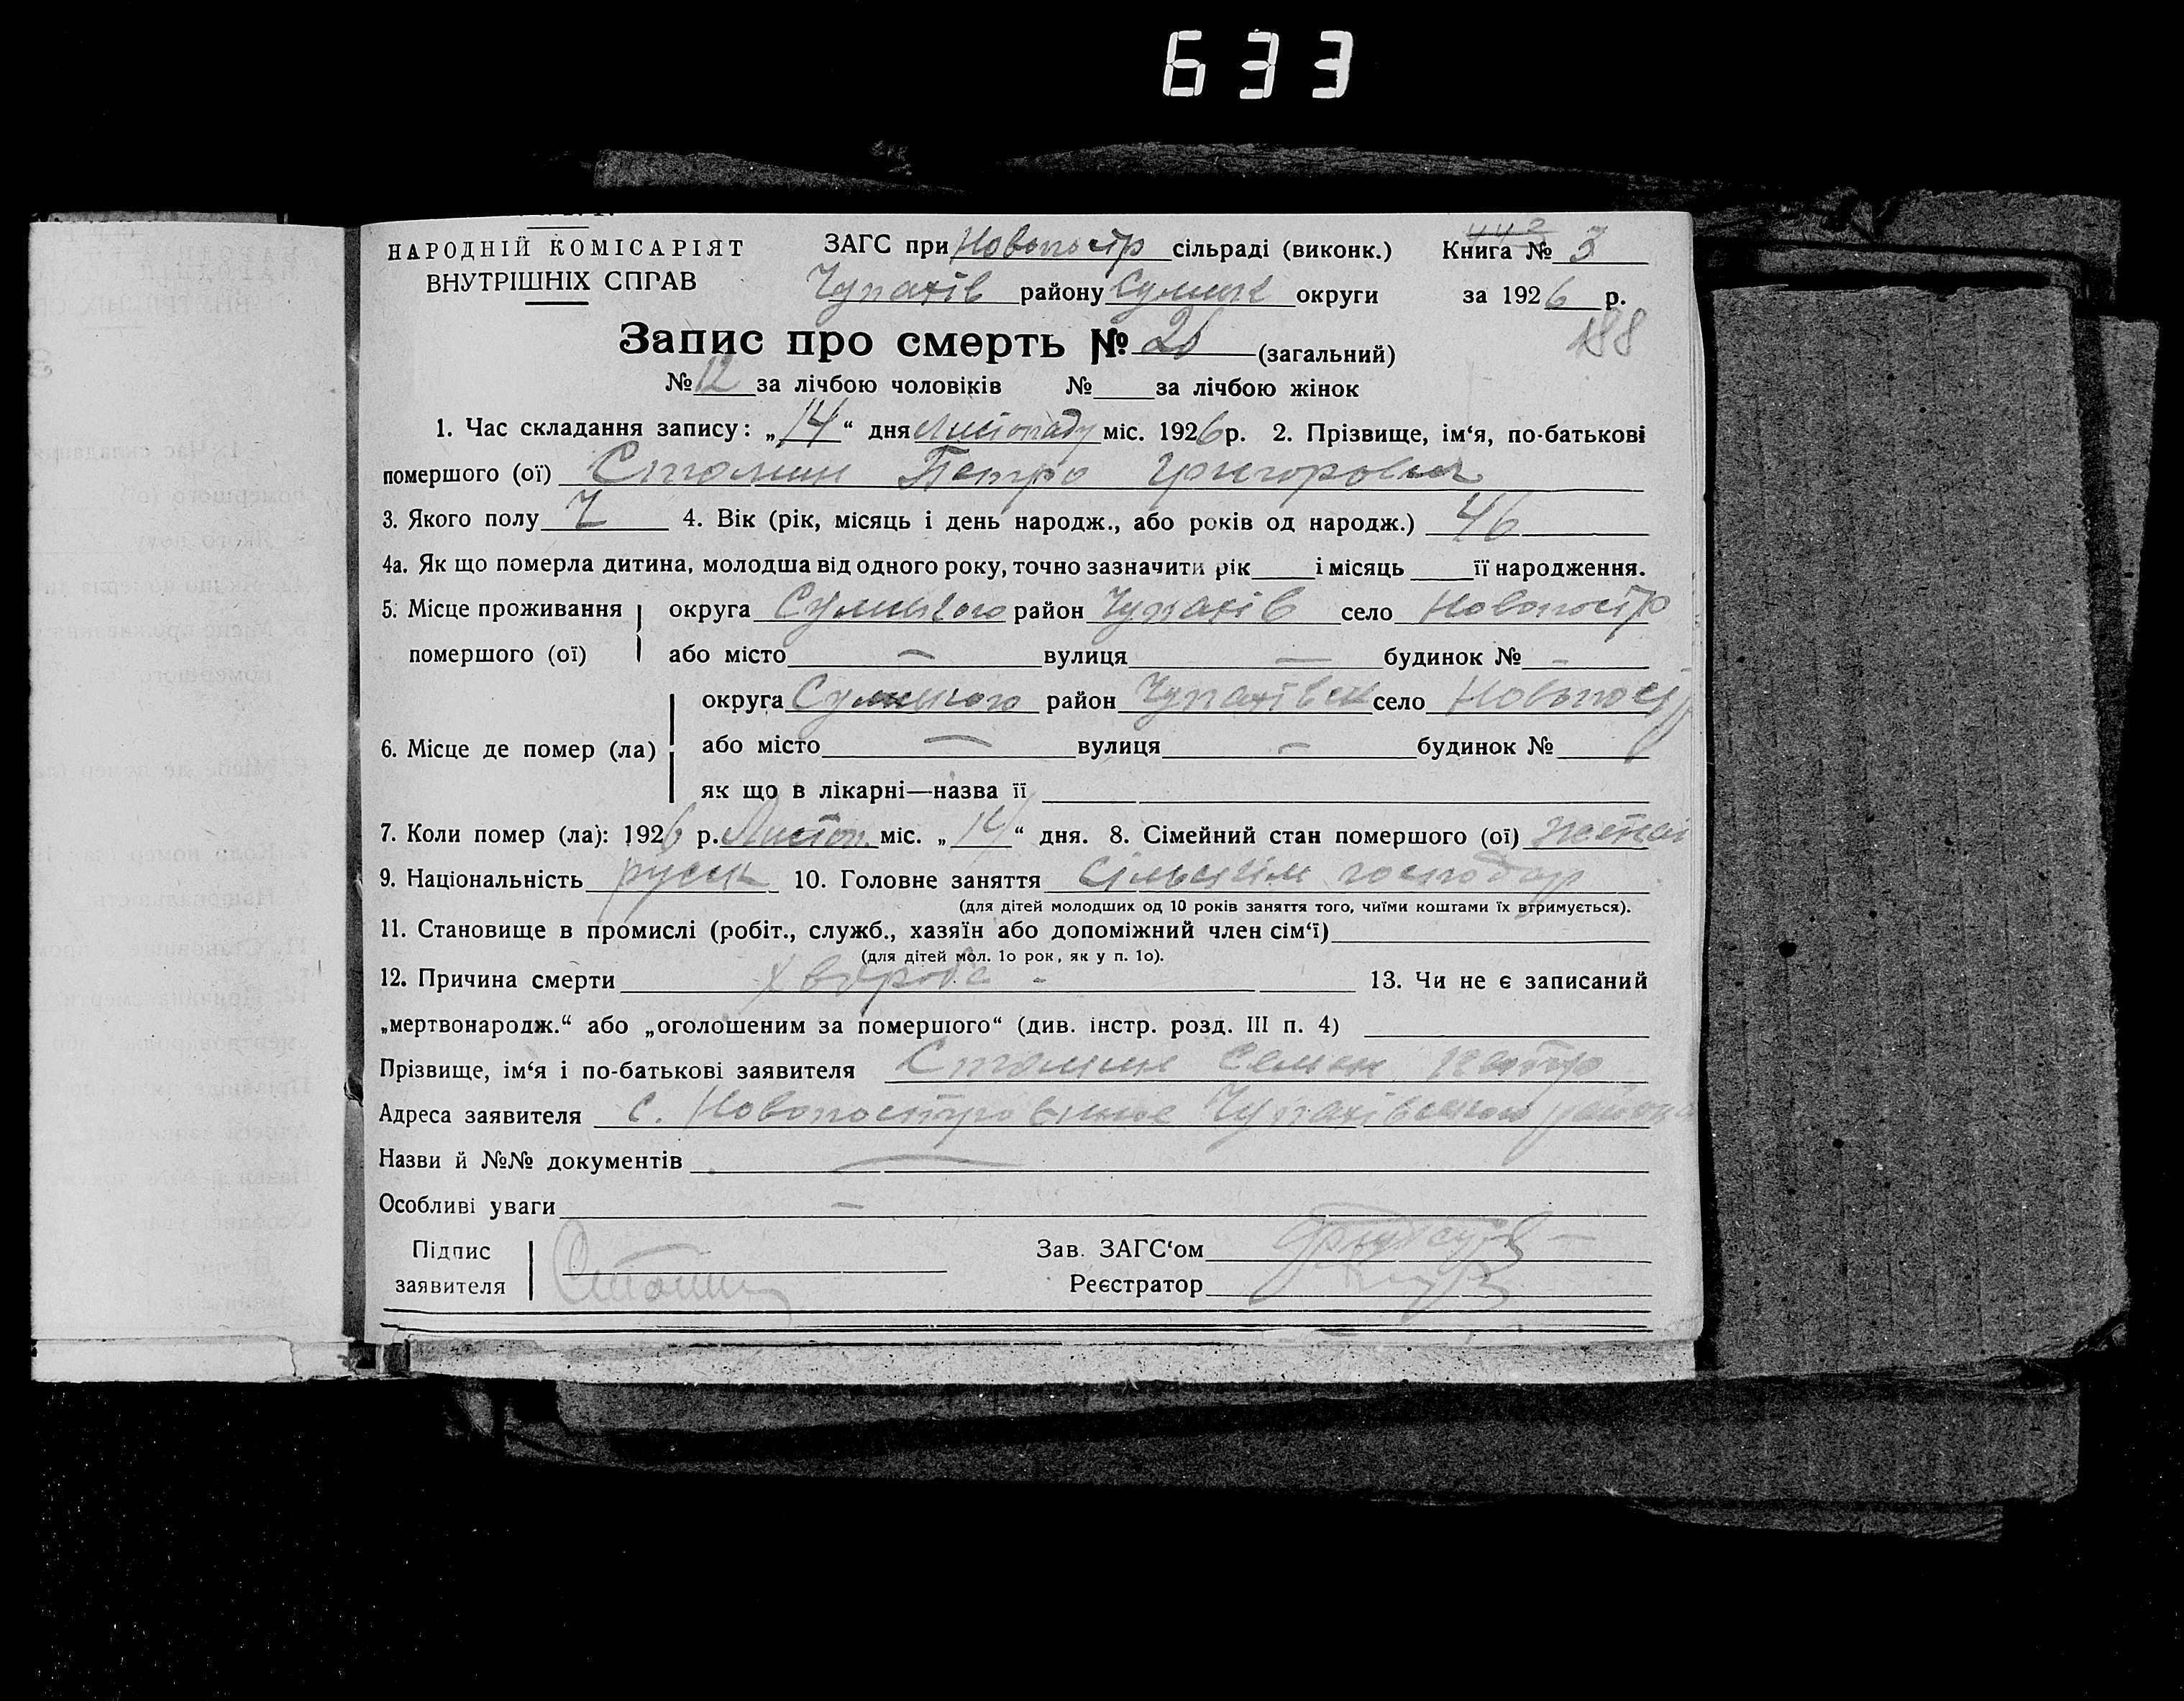 633
НАРОДНІЙ КОМІСАРІЯТ
ВНУТРІШНІХ СПРАВ
ЗАГС при Новопостр сільраді (виконк.) Книга № 3
Чупахів району Сумськ округи за 1926 р.
188
Запис про смерть № 26 (загальний)
№ 12 за лічбою чоловіків № за лічбою жінок
1. Час складання запису: „14“ дня Листопаду міс. 1926 р. 2. Прізвище, ім‘я, по-батькові
помершого (ої) Стомин Петро Григорович
3. Якого полу Ч 4. Вік (рік, місяць і день народж., або років од народж.) 46
4а. Як що померла дитина, молодша від одного року, точно зазначити рік і місяць її народження.
5. Місце проживання помершого (ої) округа Сумського район Чупахів село Новопостр
або місто — вулиця — будинок № —
6. Місце де помер (ла) округа Сумського район Чупахівськ село Новопостр
або місто — вулиця — будинок №
як що в лікарні—назва її
7. Коли помер (ла): 1926 р. Листоп. міс. „14“ дня. 8. Сімейний стан помершого (ої)
9. Національність руськ 10. Головне заняття сільським господар
(для дітей молодших од 10 років заняття того, чиїми коштами їх втримується).
11. Становище в промислі (робіт., служб., хазяїн або допоміжний член сім‘ї)
(для дітей мол. 1о рок, як у п. 1о).
12. Причина смерти хвороба - 13. Чи не є записаний
„мертвонародж.“ або „оголошеним за помершого“ (див. інстр. розд. III п. 4)
Прізвище, ім‘я і по-батькові заявителя Стомин Семен Петро
Адреса заявителя с. Чупахівського району
Назви й №№ документів —
Особливі уваги —
Підпис заявителя Стомин
Зав. ЗАГС‘ом
Реєстратор